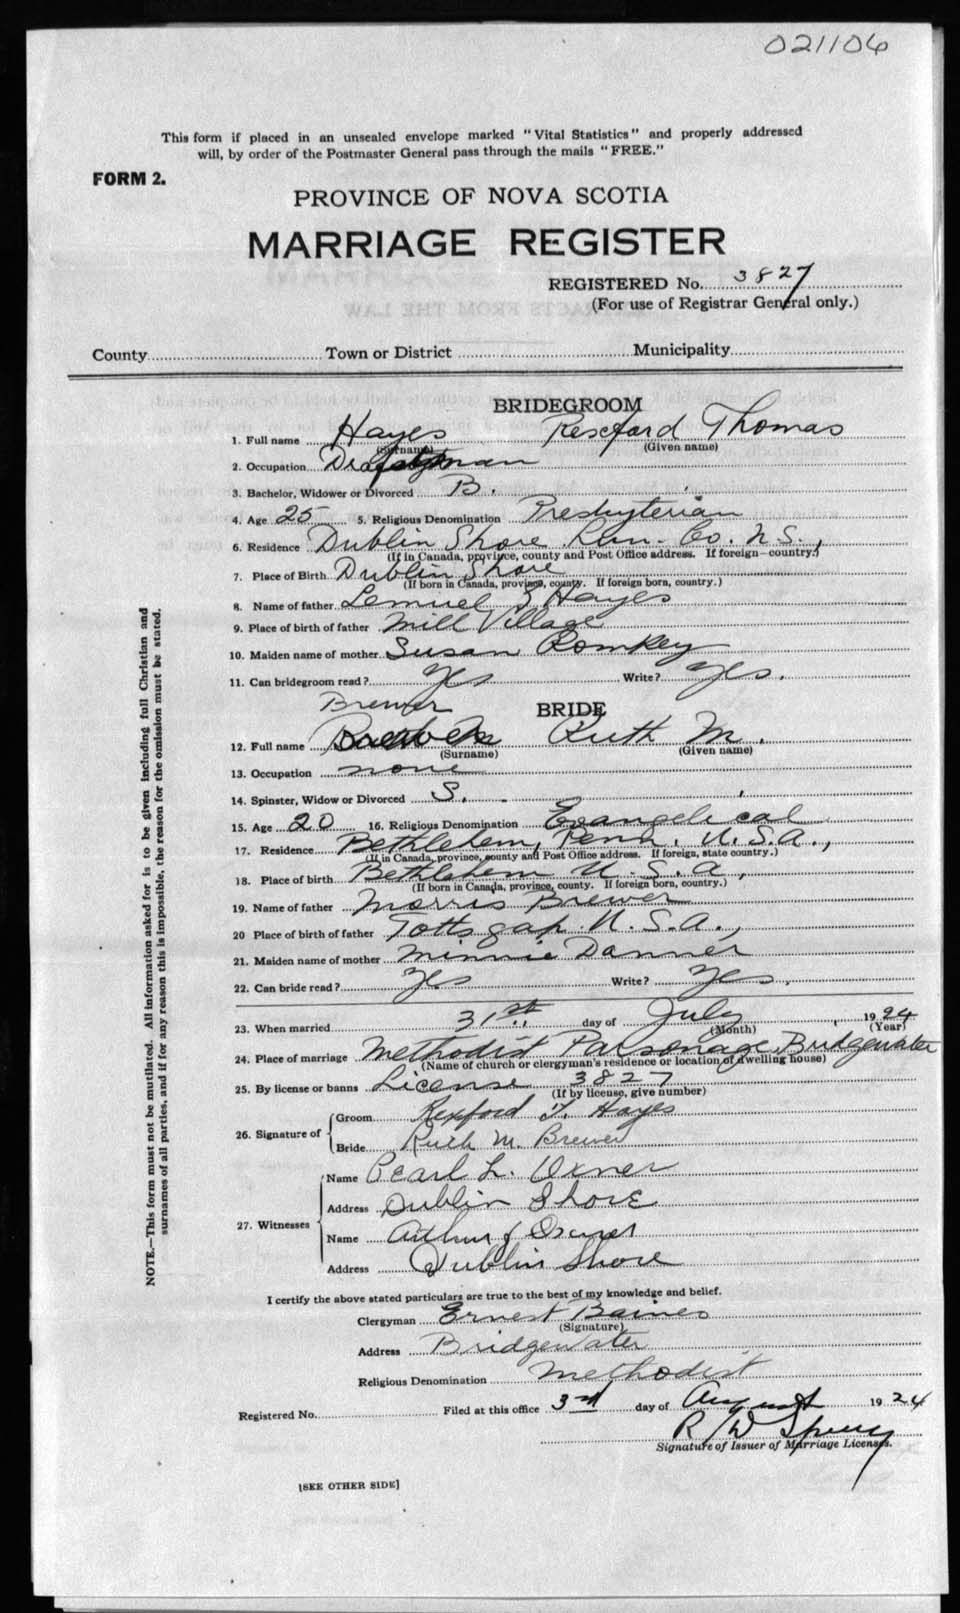 021106
This form if placed in an unsealed envelope marked "Vital Statistics" and properly addressed
will, by order of the Postmaster General pass through the mails "FREE."
FORM 2.
PROVINCE OF NOVA SCOTIA
MARRIAGE REGISTER
REGISTERED No. 3827
(For use of Registrar General only.)
County Town or District Municipality
BRIDEGROOM
1. Full name Hayes Rexford Thomas
(Surname) (Given name)
2. Occupation
3. Bachelor, Widower or Divorced B.
4. Age 25 5. Religious Denomination Presbyterian
6. Residence Dublin Shore Lun. Co. N.S.,
(If in Canada, province, county and Post Office address. If foreign—country.)
7. Place of Birth Dublin Shore
(If born in Canada, province, county. If foreign born, country.)
8. Name of father Lemuel S Hayes
9. Place of birth of father Mill Village
10. Maiden name of mother Susan Romkey
11. Can bridegroom read? Yes Write? Yes.
Brewer
BRIDE
12. Full name Ruth M.
(Surname) (Given name)
13. Occupation none
14. Spinster, Widow or Divorced S.
15. Age 20 16. Religious Denomination Evangelical
17. Residence Bethlehem, Penn. U.S.A.,
(If in Canada, province, county and Post Office address. If foreign, state country.)
18. Place of birth Bethlehem U.S.A,
(If born in Canada, province, county. If foreign born, country.)
19. Name of father Morris Brewer
20 Place of birth of father Totts gap U.S.A.,
21. Maiden name of mother Minnie Danner
22. Can bride read? Yes Write? Yes.
23. When married 31st. day of July 1924
(Month) (Year)
24. Place of marriage Methodist Parsonage, Bridgewater
(Name of church or clergyman's residence or location of dwelling house)
25. By license or banns License 3827
(If by license, give number)
26. Signature of
Groom Rexford T. Hayes
Bride Ruth M. Brewer
27. Witnesses
Name Pearl L. Oxner
Address Dublin Shore
Name Arthur J Oxner
Address Dublin Shore
I certify the above stated particulars are true to the best of my knowledge and belief.
Clergyman Ernest Baines
(Signature)
Address Bridgewater
Religious Denomination Methodist
Registered No. Filed at this office 3rd day of August 1924
R W
Signature of Issuer of Marriage Licenses.
[SEE OTHER SIDE]
NOTE.—This form must not be mutilated. All information asked for is to be given including full Christian and
surnames of all parties, and if for any reason this is impossible, the reason for the omission must be stated.